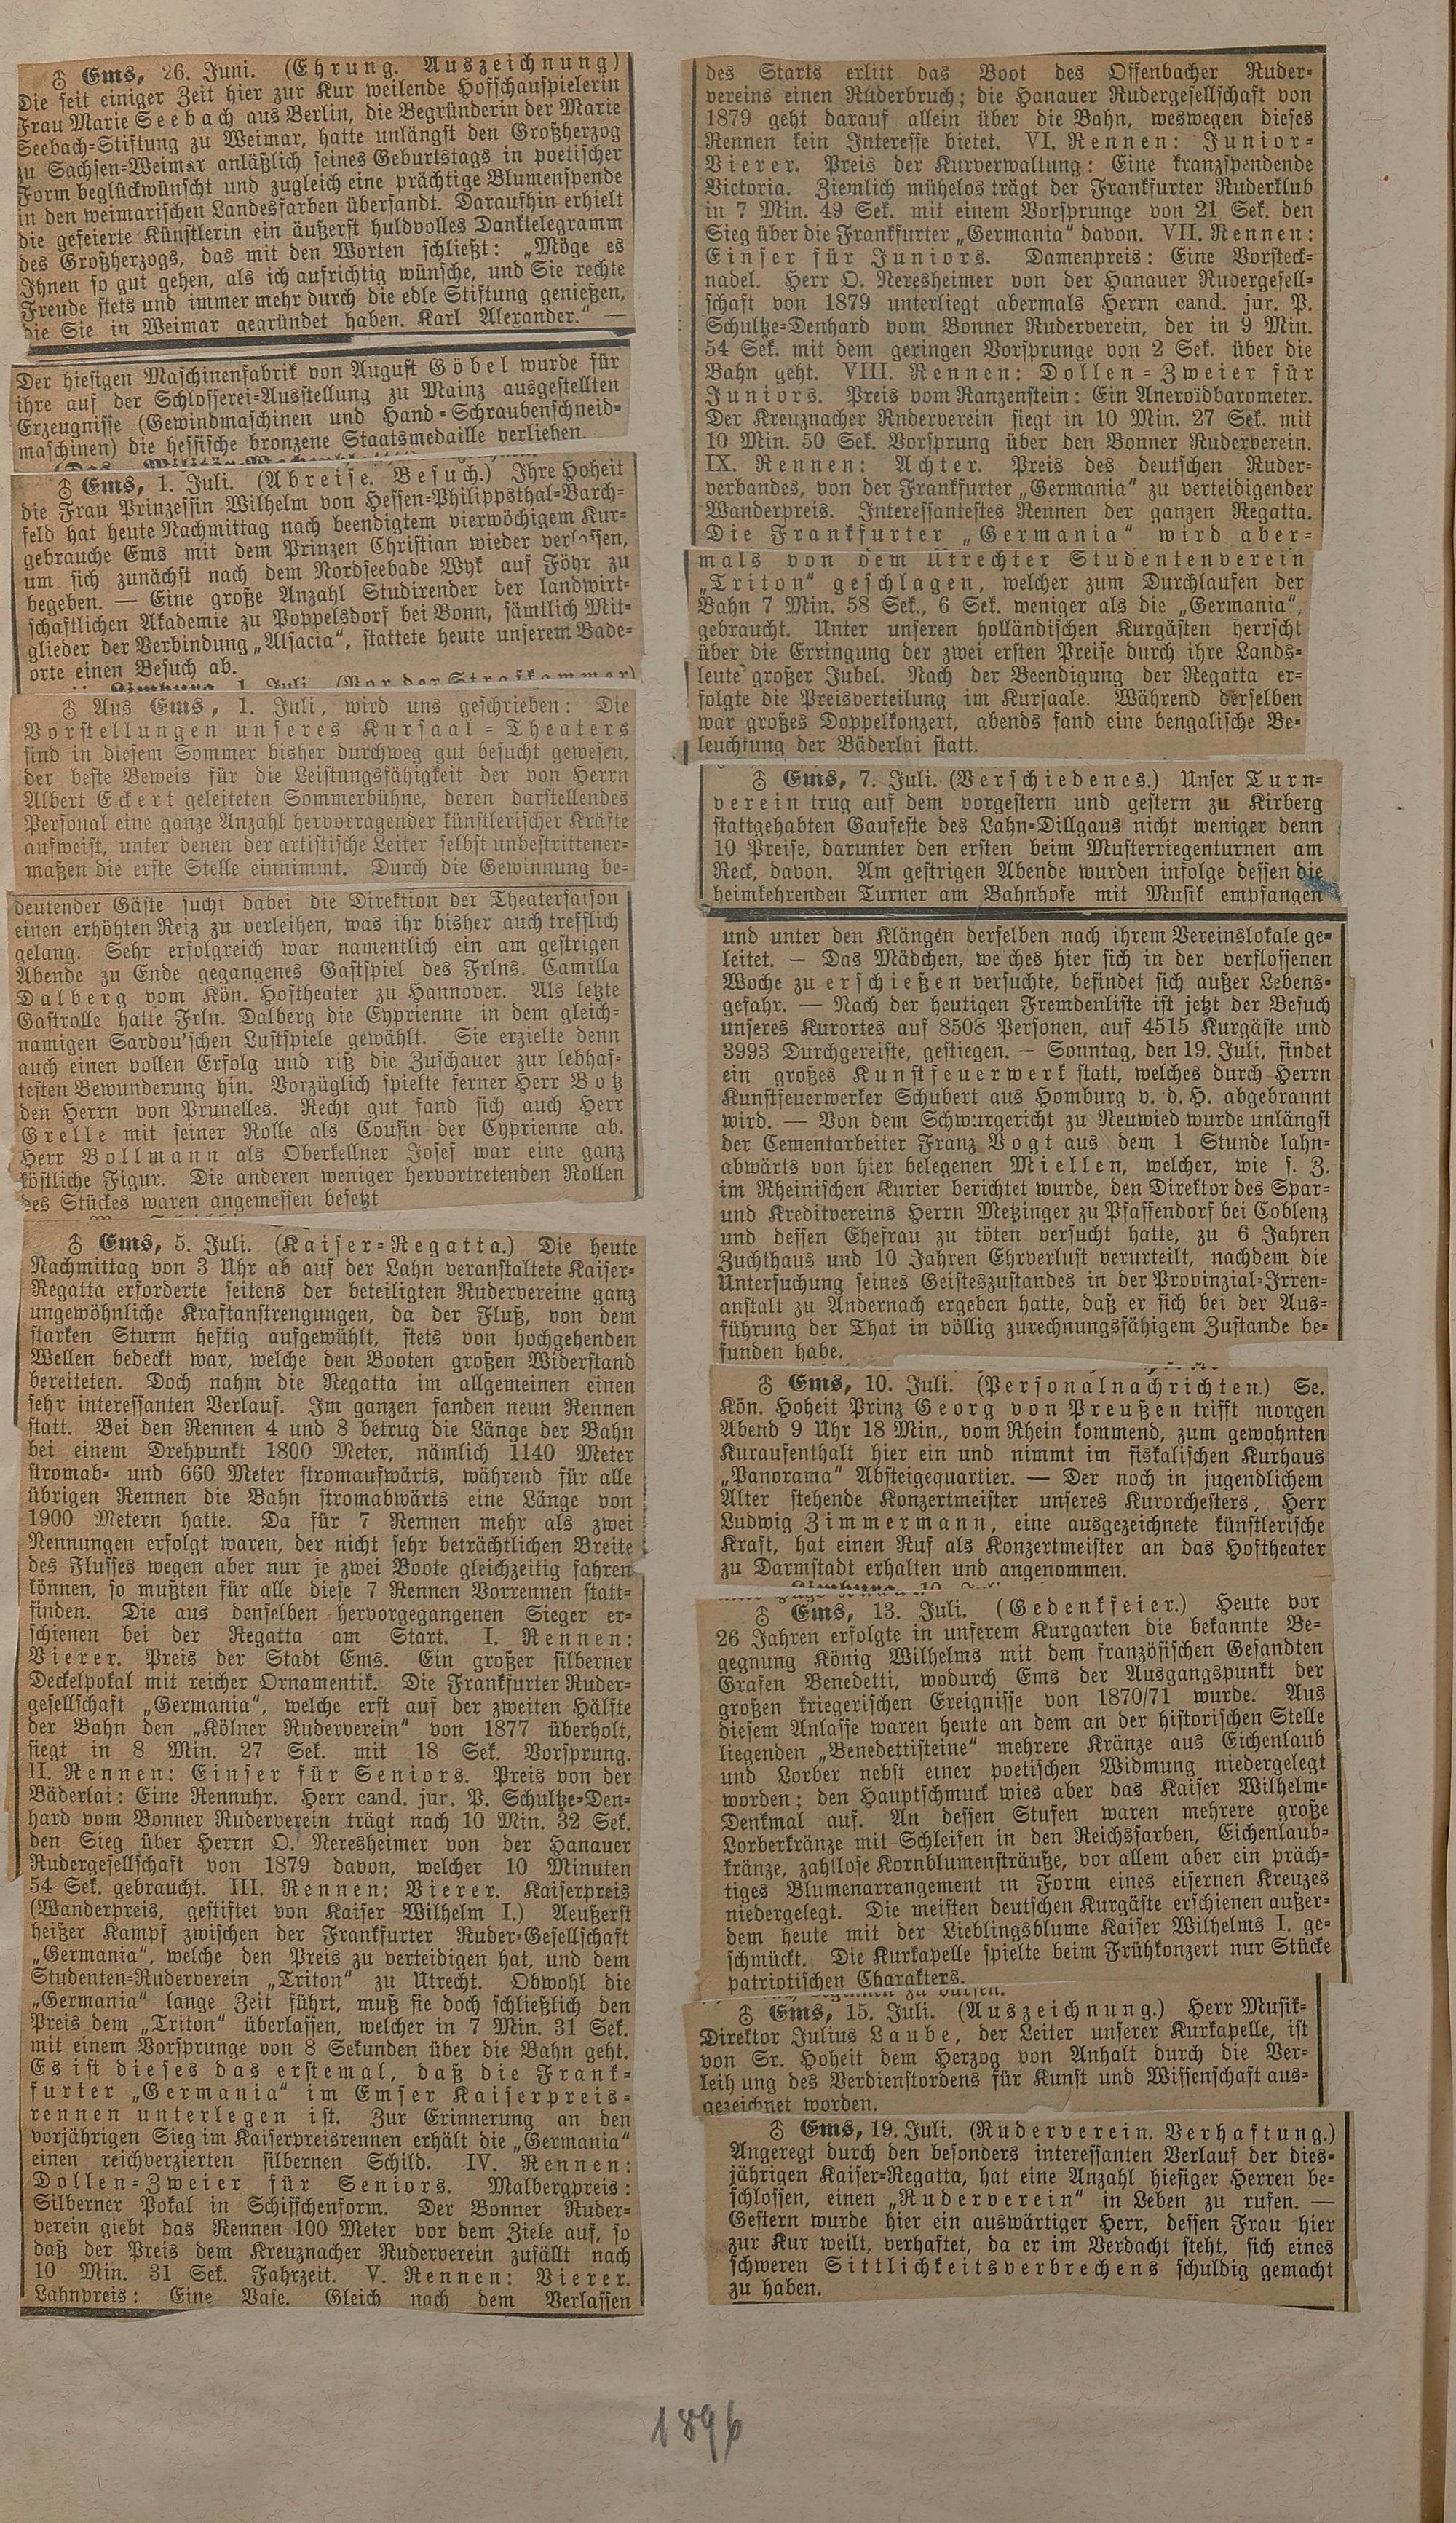 ♁ Ems, 26. Juni. (Ehrung. Auszeichnung)
Die seit einiger Zeit hier zur Kur weilende Hofschauspielerin
Frau Marie Seebach aus Berlin, die Begründerin der Marie
Seebach-Stiftung zu Weimar, hatte unlängst den Großherzog
zu Sachsen-Weimar anläßlich seines Geburtstags in poetischer
Form beglückwünscht und zugleich eine prächtige Blumenspende
in den weimarischen Landesfarben übersandt. Daraufhin erhielt
die gefeierte Künstlerin ein äußerst huldvolles Danktelegramm
des Großherzogs, das mit den Worten schließt: „Möge es
Ihnen so gut gehen, als ich aufrichtig wünsche, und Sie rechte
Freude stets und immer mehr durch die edle Stiftung genießen,
die Sie in Weimar gegründet haben. Karl Alexander." —
Der hiesigen Maschinenfabrik von August Göbel wurde für
ihre auf der Schlosserei-Ausstellung zu Mainz ausgestellten
Erzeugnisse (Gewindmaschinen und Hand-Schraubenschneid-
maschinen) die hessische bronzene Staatsmedaille verliehen.
♁ Ems, 1. Juli. (Abreise. Besuch.) Ihre Hoheit
die Frau Prinzessin Wilhelm von Hessen-Philippsthal-Barch-
feld hat heute Nachmittag nach beendigtem vierwöchigem Kur-
gebrauche Ems mit dem Prinzen Christian wieder verlassen,
um sich zunächst nach dem Nordseebade Wyk auf Föhr zu
begeben. — Eine große Anzahl Studirender der landwirt-
schaftlichen Akademie zu Poppelsdorf bei Bonn, sämtlich Mit-
glieder der Verbindung „Alsacia", stattete heute unserem Bade-
orte einen Besuch ab.
Limburg, 1. Juli. (Vor der Strafkammer)
♁ Aus Ems, 1. Juli, wird uns geschrieben: Die
Vorstellungen unseres Kursaal-Theaters
sind in diesem Sommer bisher durchweg gut besucht gewesen,
der beste Beweis für die Leistungsfähigkeit der von Herrn
Albert Eckert geleiteten Sommerbühne, deren darstellendes
Personal eine ganze Anzahl hervorragender künstlerischer Kräfte
aufweist, unter denen der artistische Leiter selbst unbestrittener-
maßen die erste Stelle einnimmt. Durch die Gewinnung be-
deutender Gäste sucht dabei die Direktion der Theatersaison
einen erhöhten Reiz zu verleihen, was ihr bisher auch trefflich
gelang. Sehr erfolgreich war namentlich ein am gestrigen
Abende zu Ende gegangenes Gastspiel des Frlns. Camilla
Dalberg vom Kön. Hoftheater zu Hannover. Als letzte
Gastrolle hatte Frln. Dalberg die Cyprienne in dem gleich-
namigen Sardou'schen Lustspiele gewählt. Sie erzielte denn
auch einen vollen Erfolg und riß die Zuschauer zur lebhaf-
testen Bewunderung hin. Vorzüglich spielte ferner Herr Botz
den Herrn von Prunelles. Recht gut fand sich auch Herr
Grelle mit seiner Rolle als Cousin der Cyprienne ab.
Herr Bollmann als Oberkellner Josef war eine ganz
köstliche Figur. Die anderen weniger hervortretenden Rollen
des Stückes waren angemessen besetzt
♁ Ems, 5. Juli. (Kaiser-Regatta.) Die heute
Nachmittag von 3 Uhr ab auf der Lahn veranstaltete Kaiser-
Regatta erforderte seitens der beteiligten Rudervereine ganz
ungewöhnliche Kraftanstrengungen, da der Fluß, von dem
starken Sturm heftig aufgewühlt, stets von hochgehenden
Wellen bedeckt war, welche den Booten großen Widerstand
bereiteten. Doch nahm die Regatta im allgemeinen einen
sehr interessanten Verlauf. Im ganzen fanden neun Rennen
statt. Bei den Rennen 4 und 8 betrug die Länge der Bahn
bei einem Drehpunkt 1800 Meter, nämlich 1140 Meter
stromab- und 660 Meter stromaufwärts, während für alle
übrigen Rennen die Bahn stromabwärts eine Länge von
1900 Metern hatte. Da für 7 Rennen mehr als zwei
Nennungen erfolgt waren, der nicht sehr beträchtlichen Breite
des Flusses wegen aber nur je zwei Boote gleichzeitig fahren
können, so mußten für alle diese 7 Rennen Vorrennen statt-
finden. Die aus denselben hervorgegangenen Sieger er-
schienen bei der Regatta am Start. I. Rennen:
Vierer. Preis der Stadt Ems. Ein großer silberner
Deckelpokal mit reicher Ornamentik. Die Frankfurter Ruder-
gesellschaft „Germania", welche erst auf der zweiten Hälfte
der Bahn den „Kölner Ruderverein" von 1877 überholt,
siegt in 8 Min. 27 Sek. mit 18 Sek. Vorsprung.
II. Rennen: Einser für Seniors. Preis von der
Bäderlai: Eine Rennuhr. Herr cand. jur. P. Schultze-Den-
hard vom Bonner Ruderverein trägt nach 10 Min. 32 Sek.
den Sieg über Herrn O. Neresheimer von der Hanauer
Rudergesellschaft von 1879 davon, welcher 10 Minuten
54 Sek. gebraucht. III. Rennen: Vierer. Kaiserpreis
(Wanderpreis, gestiftet von Kaiser Wilhelm I.) Aeußerst
heißer Kampf zwischen der Frankfurter Ruder-Gesellschaft
„Germania", welche den Preis zu verteidigen hat, und dem
Studenten-Ruderverein „Triton" zu Utrecht. Obwohl die
„Germania" lange Zeit führt, muß sie doch schließlich den
Preis dem „Triton" überlassen, welcher in 7 Min. 31 Sek.
mit einem Vorsprunge von 8 Sekunden über die Bahn geht.
Es ist dieses das erstemal, daß die Frank-
furter „Germania" im Emser Kaiserpreis-
rennen unterlegen ist. Zur Erinnerung an den
vorjährigen Sieg im Kaiserpreisrennen erhält die „Germania"
einen reichverzierten silbernen Schild. IV. Rennen:
Dollen-Zweier für Seniors. Malbergpreis:
Silberner Pokal in Schiffchenform. Der Bonner Ruder-
verein giebt das Rennen 100 Meter vor dem Ziele auf, so
daß der Preis dem Kreuznacher Ruderverein zufällt nach
10 Min. 31 Sek. Fahrzeit. V. Rennen: Vierer.
Lahnpreis: Eine Vase. Gleich nach dem Verlassen
des Starts erlitt das Boot des Offenbacher Ruder-
vereins einen Ruderbruch; die Hanauer Rudergesellschaft von
1879 geht darauf allein über die Bahn, weswegen dieses
Rennen kein Interesse bietet. VI. Rennen: Junior-
Vierer. Preis der Kurverwaltung: Eine kranzspendende
Victoria. Ziemlich mühelos trägt der Frankfurter Ruderklub
in 7 Min. 49 Sek. mit einem Vorsprunge von 21 Sek. den
Sieg über die Frankfurter „Germania" davon. VII. Rennen:
Einser für Juniors. Damenpreis: Eine Vorsteck-
nadel. Herr O. Neresheimer von der Hanauer Rudergesell-
schaft von 1879 unterliegt abermals Herrn cand. jur. P.
Schultze-Denhard vom Bonner Ruderverein, der in 9 Min.
54 Sek. mit dem geringen Vorsprunge von 2 Sek. über die
Bahn geht. VIII. Rennen: Dollen-Zweier für
Juniors. Preis vom Ranzenstein: Ein Aneroïdbarometer.
Der Kreuznacher Ruderverein siegt in 10 Min. 27 Sek. mit
10 Min. 50 Sek. Vorsprung über den Bonner Ruderverein.
IX. Rennen: Achter. Preis des deutschen Ruder-
verbandes, von der Frankfurter „Germania" zu verteidigender
Wanderpreis. Interessantestes Rennen der ganzen Regatta.
Die Frankfurter „Germania" wird aber-
mals von dem Utrechter Studentenverein
„Triton" geschlagen, welcher zum Durchlaufen der
Bahn 7 Min. 58 Sek., 6 Sek. weniger als die „Germania",
gebraucht. Unter unseren holländischen Kurgästen herrscht
über die Erringung der zwei ersten Preise durch ihre Lands-
leute großer Jubel. Nach der Beendigung der Regatta er-
folgte die Preisverteilung im Kursaale. Während derselben
war großes Doppelkonzert, abends fand eine bengalische Be-
leuchtung der Bäderlai statt.
♁ Ems, 7. Juli. (Verschiedenes.) Unser Turn-
verein trug auf dem vorgestern und gestern zu Kirberg
stattgehabten Gaufeste des Lahn-Dillgaus nicht weniger denn
10 Preise, darunter den ersten beim Musterriegenturnen am
Reck, davon. Am gestrigen Abende wurden infolge dessen die
heimkehrenden Turner am Bahnhofe mit Musik empfangen
und unter den Klängen derselben nach ihrem Vereinslokale ge-
leitet. — Das Mädchen, we ches hier sich in der verflossenen
Woche zu erschießen versuchte, befindet sich außer Lebens-
gefahr. — Nach der heutigen Fremdenliste ist jetzt der Besuch
unseres Kurortes auf 8508 Personen, auf 4515 Kurgäste und
3993 Durchgereiste, gestiegen. — Sonntag, den 19. Juli, findet
ein großes Kunstfeuerwerk statt, welches durch Herrn
Kunstfeuerwerker Schubert aus Homburg v. d. H. abgebrannt
wird. — Von dem Schwurgericht zu Neuwied wurde unlängst
der Cementarbeiter Franz Vogt aus dem 1 Stunde lahn-
abwärts von hier belegenen Miellen, welcher, wie s. Z.
im Rheinischen Kurier berichtet wurde, den Direktor des Spar-
und Kreditvereins Herrn Metzinger zu Pfaffendorf bei Coblenz
und dessen Ehefrau zu töten versucht hatte, zu 6 Jahren
Zuchthaus und 10 Jahren Ehrverlust verurteilt, nachdem die
Untersuchung seines Geisteszustandes in der Provinzial-Irren-
anstalt zu Andernach ergeben hatte, daß er sich bei der Aus-
führung der That in völlig zurechnungsfähigem Zustande be-
funden habe.
♁ Ems, 10. Juli. (Personalnachrichten.) Se.
Kön. Hoheit Prinz Georg von Preußen trifft morgen
Abend 9 Uhr 18 Min., vom Rhein kommend, zum gewohnten
Kuraufenthalt hier ein und nimmt im fiskalischen Kurhaus
„Panorama" Absteigequartier. — Der noch in jugendlichem
Alter stehende Konzertmeister unseres Kurorchesters, Herr
Ludwig Zimmermann, eine ausgezeichnete künstlerische
Kraft, hat einen Ruf als Konzertmeister an das Hoftheater
zu Darmstadt erhalten und angenommen.
♁ Ems, 13. Juli. (Gedenkfeier.) Heute vor
26 Jahren erfolgte in unserem Kurgarten die bekannte Be-
gegnung König Wilhelms mit dem französischen Gesandten
Grafen Benedetti, wodurch Ems der Ausgangspunkt der
großen kriegerischen Ereignisse von 1870/71 wurde. Aus
diesem Anlasse waren heute an dem an der historischen Stelle
liegenden „Benedettisteine" mehrere Kränze aus Eichenlaub
und Lorber nebst einer poetischen Widmung niedergelegt
worden; den Hauptschmuck wies aber das Kaiser Wilhelm-
Denkmal auf. An dessen Stufen waren mehrere große
Lorberkränze mit Schleifen in den Reichsfarben, Eichenlaub-
kränze, zahllose Kornblumensträuße, vor allem aber ein präch-
tiges Blumenarrangement in Form eines eisernen Kreuzes
niedergelegt. Die meisten deutschen Kurgäste erschienen außer-
dem heute mit der Lieblingsblume Kaiser Wilhelms I. ge-
schmückt. Die Kurkapelle spielte beim Frühkonzert nur Stücke
patriotischen Charakters.
♁ Ems, 15. Juli. (Auszeichnung.) Herr Musik-
Direktor Julius Laube, der Leiter unserer Kurkapelle, ist
von Sr. Hoheit dem Herzog von Anhalt durch die Ver-
leih ung des Verdienstordens für Kunst und Wissenschaft aus-
gezeichnet worden.
♁ Ems, 19. Juli. (Ruderverein. Verhaftung.)
Angeregt durch den besonders interessanten Verlauf der dies-
jährigen Kaiser-Regatta, hat eine Anzahl hiesiger Herren be-
schlossen, einen „Ruderverein" in Leben zu rufen. —
Gestern wurde hier ein auswärtiger Herr, dessen Frau hier
zur Kur weilt, verhaftet, da er im Verdacht steht, sich eines
schweren Sittlichkeitsverbrechens schuldig gemacht
zu haben.
1896